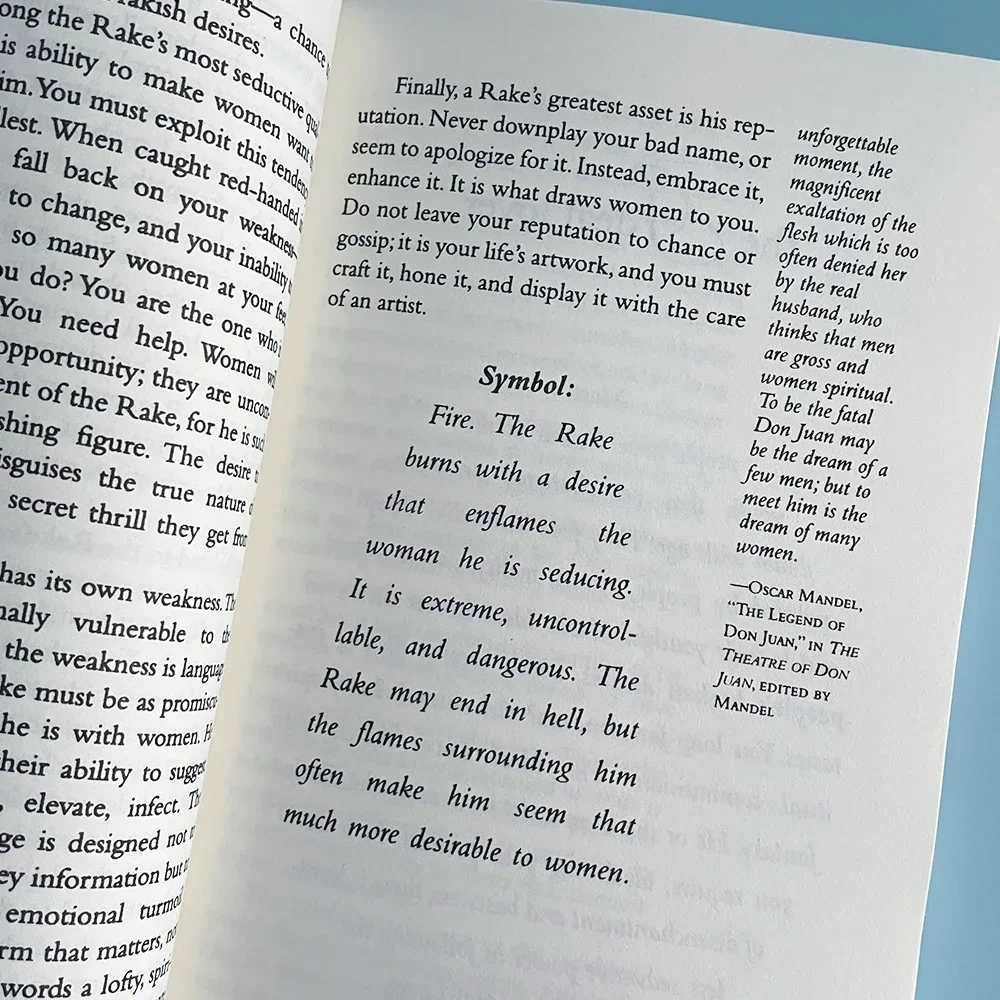 rakish desires.
ong the Rake's most seductive
is ability to make women want
im. You must exploit this
lest. When caught red-handed
fall back on your weakness—
to change, and your inability
so many women at your feet,
ou do? You are the one who
You need help. Women
opportunity; they are
ent of the Rake, for he is such
shing figure. The desire
isguises the true nature
secret thrill they get from
has its own weakness.
nally vulnerable to
the weakness is
ke must be as
he is with women.
heir ability to suggest
, elevate, infect. Th
ge is designed not
ey information but
emotional
rm that matters,
words a lofty,
Finally, a Rake's greatest asset is his rep-
utation. Never downplay your bad name, or
seem to apologize for it. Instead, embrace it,
enhance it. It is what draws women to you.
Do not leave your reputation to chance or
gossip; it is your life's artwork, and you must
craft it, hone it, and display it with the care
of an artist.
Symbol:
Fire. The Rake
burns with a desire
that enflames the
woman he is seducing.
It is extreme, uncontrol-
lable, and dangerous. The
Rake may end in hell, but
the flames surrounding him
often make him seem that
much more desirable to women.
unforgettable
moment, the
magnificent
exaltation of the
flesh which is too
often denied her
by the real
husband, who
thinks that men
are gross and
women spiritual.
To be the fatal
Don Juan may
be the dream of a
few men; but to
meet him is the
dream of many
women.
—OSCAR MANDEL,
"THE LEGEND OF
DON JUAN," IN THE
THEATRE OF DON
JUAN, EDITED BY
MANDEL